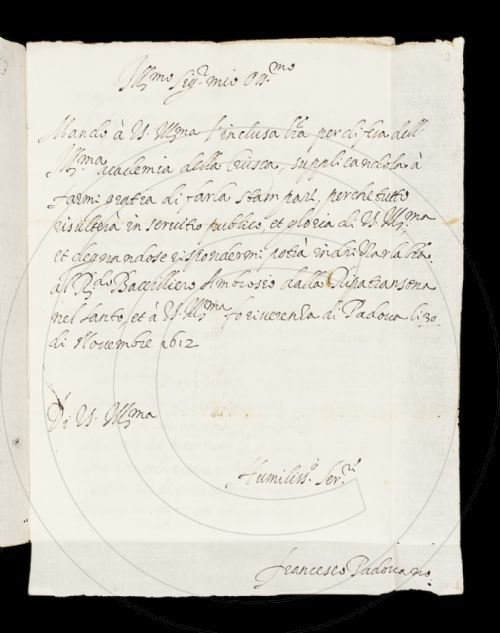 Ill.mo Sig.r mio Oss.mo
Mando à V.S. Ill.ma l'inclusa l.ra per difesa dell'
Ill.ma academia della Crusca, supplicandola à
farmi gratia di farla stampare, perche tutto
risulterà in servitio publico, et gloria di V.S. Ill.ma
et degnandose rispondermi potrà indrizzarla l.ra
al R.do Baccilliero Ambrosio dalla Ripatransona
nel santo, et à V.S. Ill.ma fo riverenza di Padova li 30
di Novembre 1612
Di V.S. Ill.ma
Humiliss.o Ser.re
Francesco Padovano
3